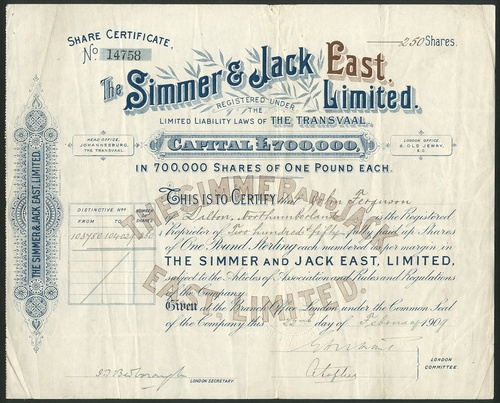 SHARE CERTIFICATE.
No 14758
250 Shares.
The Simmer & Jack East, Limited.
REGISTERED UNDER
THE
LIMITED LIABILITY LAWS OF THE TRANSVAAL.
HEAD OFFICE,
JOHANNESBURG,
THE TRANSVAAL.
CAPITAL £700,000,
LONDON OFFICE,
8, OLD JEWRY,
E.C.
IN 700,000 SHARES OF ONE POUND EACH.
THE SIMMER & JACK EAST, LIMITED.
THE SIMMER AND JACK
EAST, LIMITED.
DISTINCTIVE Nos
FROM TO
NUMBER OF SHARES
THIS IS TO CERTIFY that John Ferguson
Dalton, Northumberland is the Registered
Proprietor of Two hundred & fifty fully paid up Shares
of One Pound Sterling each numbered as per margin in
THE SIMMER AND JACK EAST, LIMITED,
subject to the Articles of Association and Rules and Regulations
of the Company.
Given at the Branch Office London under the Common Seal
of the Company this day of February 1909
LONDON SECRETARY.
LONDON
COMMITTEE